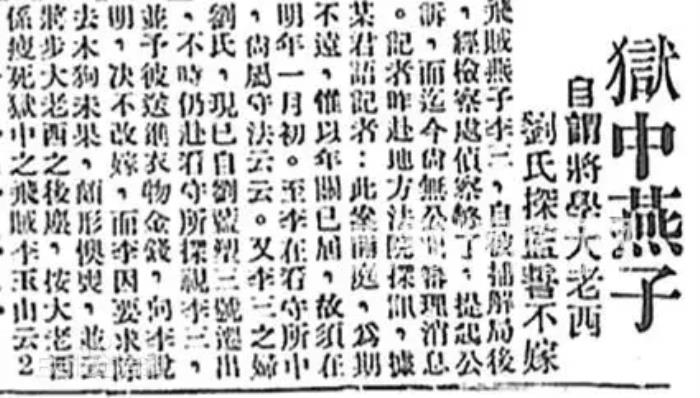 獄中燕子
自謂將學大老西
劉氏探監誓不嫁
飛賊燕子李三,自被捕解局後
,經檢察處偵察終了,提起公
訴,而迄今尚無公開審理消息
。記者昨赴地方法院探訊,據
某君語記者:此案開庭,為期
不遠,惟以年關已屆,故須在
明年一月初。至李在看守所中
,尚屬守法云云。又李三之婦
劉氏,現已自劉藍塑三號遷出
,不時仍赴看守所探視李三,
並予彼送衣物金錢,向李說
明,决不改嫁,而李因要求除
去木狗未果,頗形懊喪,並云
將步大老西之後塵,按大老西
係瘦死獄中之飛賊李玉山云2